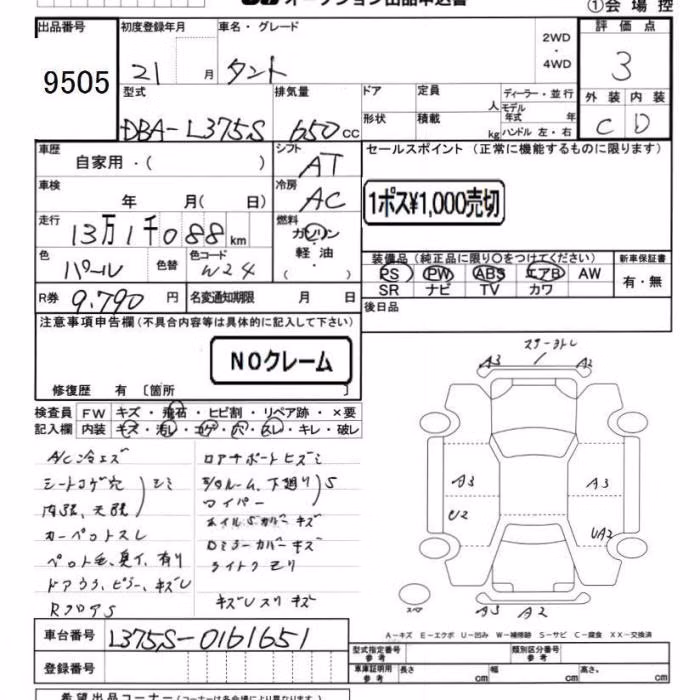 オークション出品申込書
①会場控
出品番号 初度登録年月 車名・グレード 2WD ・ 4WD 評価点
9505 21 月 タント 3
型式 排気量 ドア 定員 人 ディーラー・並行 外装 内装
DBA-L375S 650cc 形状 積載 kg モデル年式 年 ハンドル 左・右 C D
車歴 自家用・( ) シフト AT セールスポイント (正常に機能するものに限ります)
車検 年 月( 日) 冷房 AC 1ポス¥1,000売切
走行 13万1千088km 燃料 ガソリン 軽油・( )
装備品(純正品に限り〇をつけてください) 新車保証書
色 パール 色替 色コード W24 PS PW ABS エアB AW 有・無
SR ナビ TV カワ
R券 9.790円 名変通知期限 月 日 後日品
注意事項申告欄(不具合内容等は具体的に記入して下さい)
NOクレーム
修復歴 有 〔箇所 〕
検査員 FW キズ・飛石・ヒビ割・リペア跡・×要
記入欄 内装 キズ・汚レ・コゲ・穴・スレ・キレ・破レ
A/C冷エズ
シートコゲ穴
内張、天張 シミ
カーペットスレ
ペット毛、臭イ、有り
ドアウラ、ピラー、キズ
RフロアS
ロアサポートヒズミ
下廻りS
ワイパー
ホイルSカバーキズ
Dミラーカバーキズ
ライトクモリ
キズ
A3 A2
A3 A3
U2 UA2
スペア
A3 A2
A-キズ E-エクボ U-凹み W-補修跡 S-サビ C-腐食 XX-交換済
車台番号 L375S-0161651
登録番号
型式指定番号 参考 類別区分番号 参考
車庫証明用 参考 長さ cm 幅 cm 高さ cm
希望出品コーナー(コーナーは各会場により異なります。)